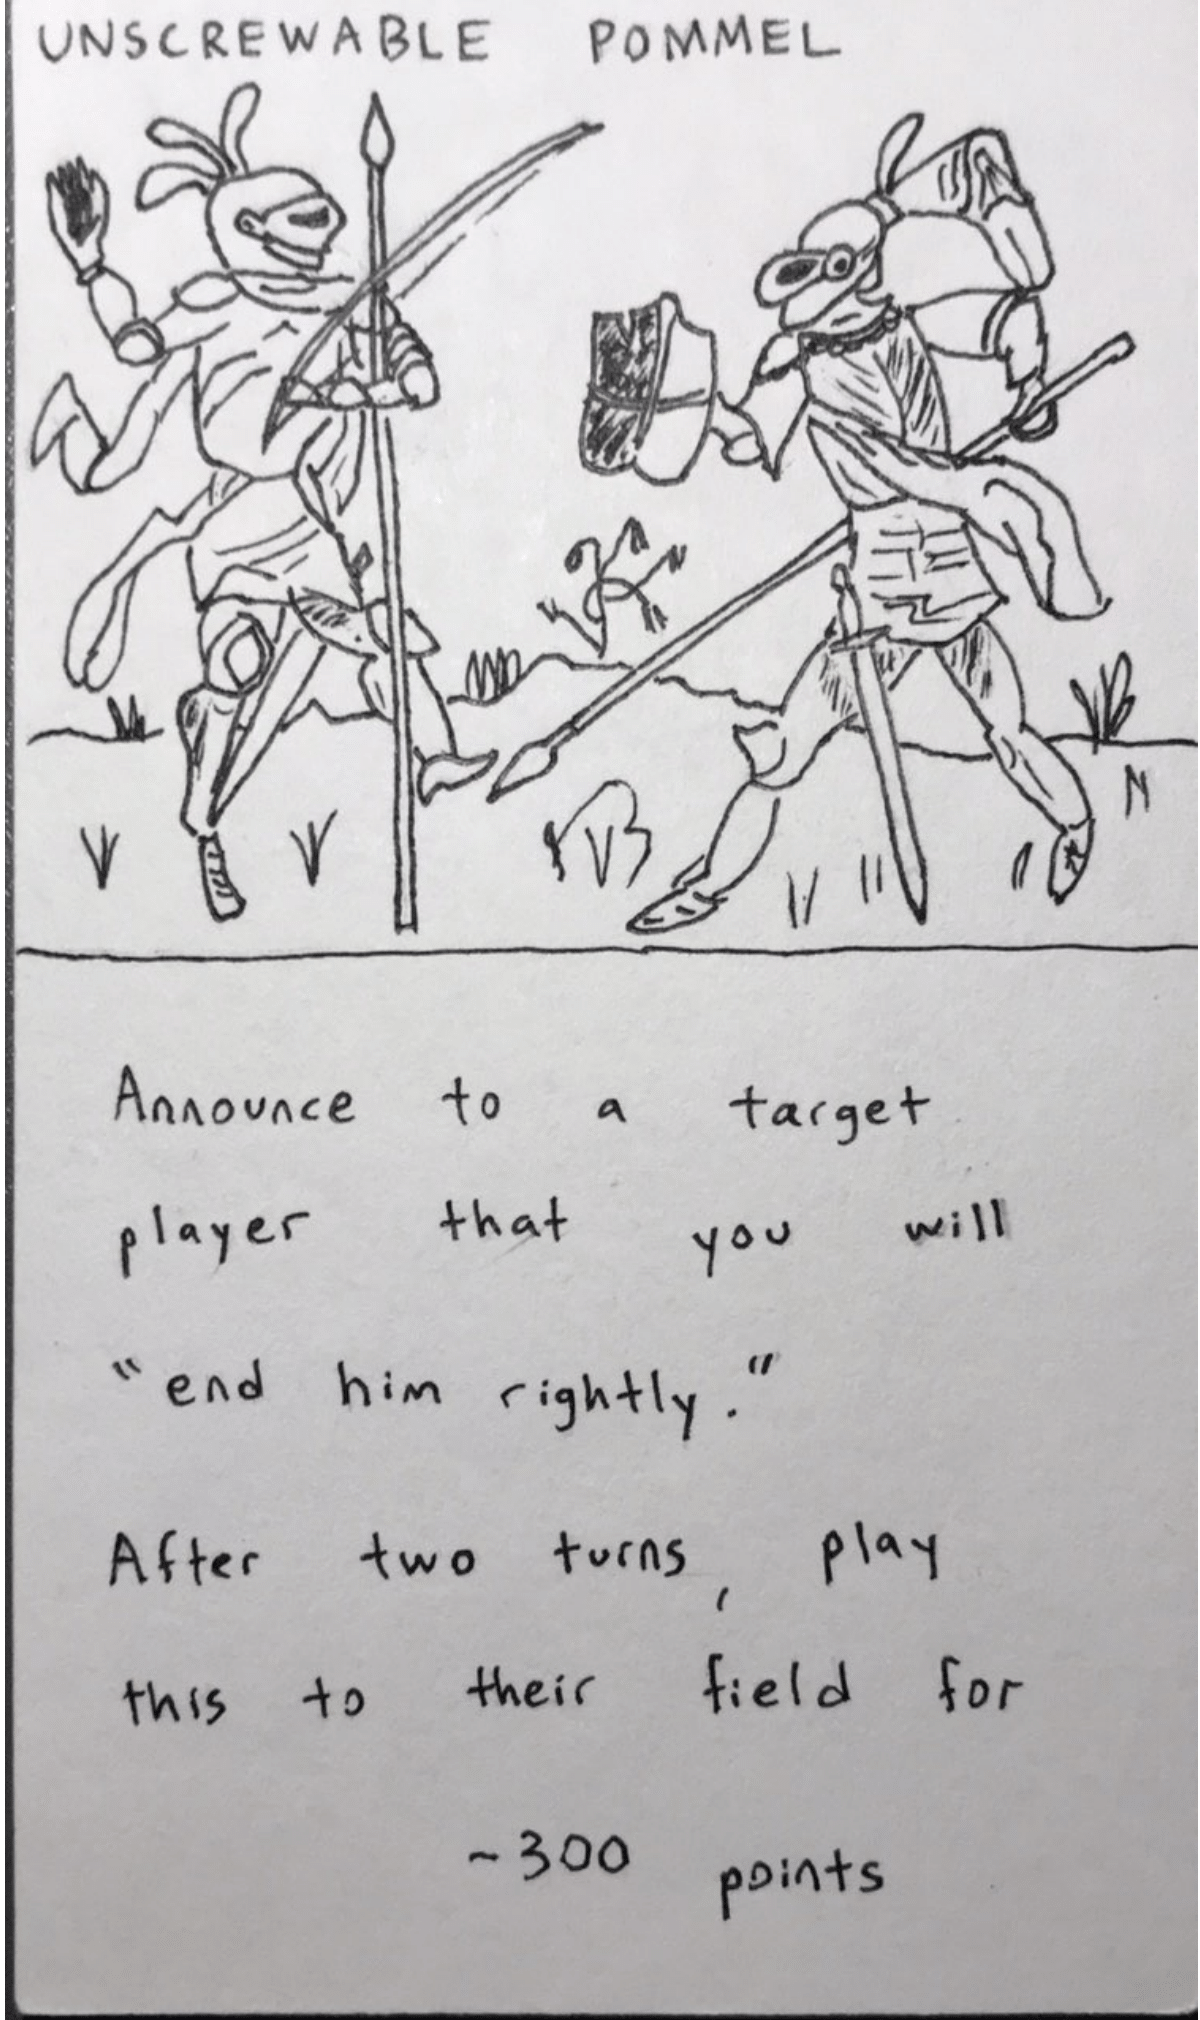 UNSCREWABLE POMMEL
Announce to a target
player that you will
"end him rightly."
After two turns, play
this to their field for
-300 points